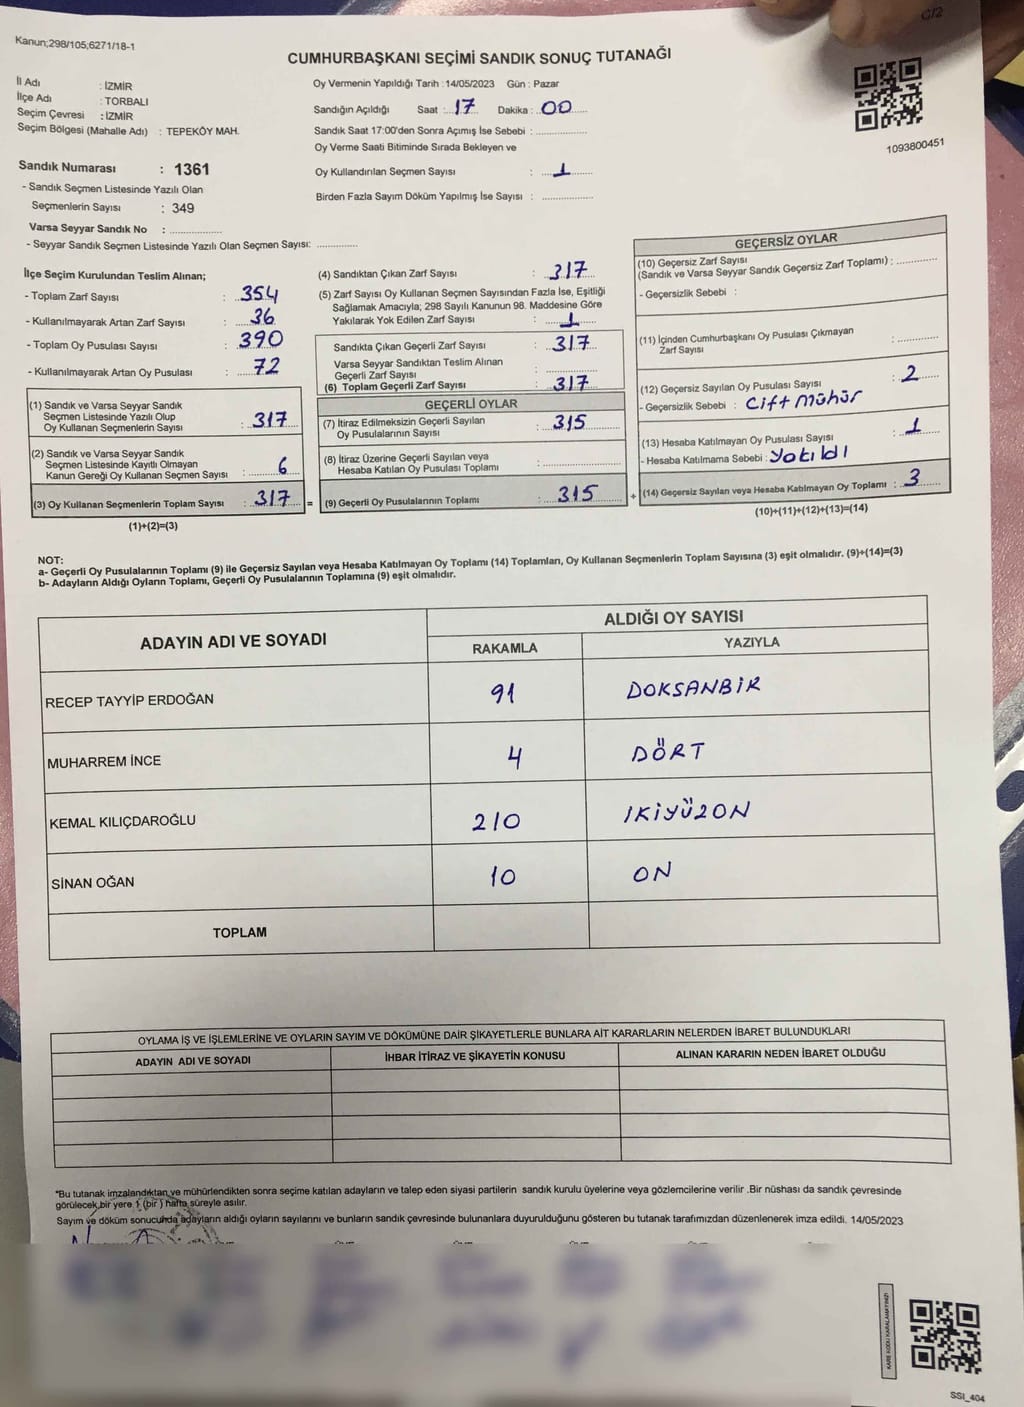 G/2
Kanun;298/105;6271/18-1
CUMHURBAŞKANI SEÇİMİ SANDIK SONUÇ TUTANAĞI
İl Adı : İZMİR
İlçe Adı : TORBALI
Seçim Çevresi : İZMİR
Seçim Bölgesi (Mahalle Adı) : TEPEKÖY MAH.
Oy Vermenin Yapıldığı Tarih : 14/05/2023 Gün : Pazar
Sandığın Açıldığı Saat : 17 Dakika : 00
Sandık Saat 17:00'den Sonra Açımış İse Sebebi :
Oy Verme Saati Bitiminde Sırada Bekleyen ve
Oy Kullandırılan Seçmen Sayısı : 1
Birden Fazla Sayım Döküm Yapılmış İse Sayısı :
1093800451
Sandık Numarası : 1361
- Sandık Seçmen Listesinde Yazılı Olan
Seçmenlerin Sayısı : 349
Varsa Seyyar Sandık No :
- Seyyar Sandık Seçmen Listesinde Yazılı Olan Seçmen Sayısı:
İlçe Seçim Kurulundan Teslim Alınan;
- Toplam Zarf Sayısı : 354
- Kullanılmayarak Artan Zarf Sayısı : 36
- Toplam Oy Pusulası Sayısı : 390
- Kullanılmayarak Artan Oy Pusulası : 72
(1) Sandık ve Varsa Seyyar Sandık
Seçmen Listesinde Yazılı Olup
Oy Kullanan Seçmenlerin Sayısı : 317
(2) Sandık ve Varsa Seyyar Sandık
Seçmen Listesinde Kayıtlı Olmayan
Kanun Gereği Oy Kullanan Seçmen Sayısı : 6
(3) Oy Kullanan Seçmenlerin Toplam Sayısı : 317 =
(1)+(2)=(3)
(4) Sandıktan Çıkan Zarf Sayısı : 317
(5) Zarf Sayısı Oy Kullanan Seçmen Sayısından Fazla İse, Eşitliği
Sağlamak Amacıyla; 298 Sayılı Kanunun 98. Maddesine Göre
Yakılarak Yok Edilen Zarf Sayısı : 1
Sandıkta Çıkan Geçerli Zarf Sayısı : 317
Varsa Seyyar Sandıktan Teslim Alınan
Geçerli Zarf Sayısı :
(6) Toplam Geçerli Zarf Sayısı : 317
GEÇERLİ OYLAR
(7) İtiraz Edilmeksizin Geçerli Sayılan
Oy Pusulalarının Sayısı : 315
(8) İtiraz Üzerine Geçerli Sayılan veya
Hesaba Katılan Oy Pusulası Toplamı :
(9) Geçerli Oy Pusulalarının Toplamı : 315 +
GEÇERSİZ OYLAR
(10) Geçersiz Zarf Sayısı
(Sandık ve Varsa Seyyar Sandık Geçersiz Zarf Toplamı) :
- Geçersizlik Sebebi :
(11) İçinden Cumhurbaşkanı Oy Pusulası Çıkmayan
Zarf Sayısı :
(12) Geçersiz Sayılan Oy Pusulası Sayısı : 2
- Geçersizlik Sebebi : Cift mühür
(13) Hesaba Katılmayan Oy Pusulası Sayısı : 1
- Hesaba Katılmama Sebebi : Yakıldı
(14) Geçersiz Sayılan veya Hesaba Katılmayan Oy Toplamı : 3
(10)+(11)+(12)+(13)=(14)
NOT:
a- Geçerli Oy Pusulalarının Toplamı (9) ile Geçersiz Sayılan veya Hesaba Katılmayan Oy Toplamı (14) Toplamları, Oy Kullanan Seçmenlerin Toplam Sayısına (3) eşit olmalıdır. (9)+(14)=(3)
b- Adayların Aldığı Oyların Toplamı, Geçerli Oy Pusulalarının Toplamına (9) eşit olmalıdır.
ADAYIN ADI VE SOYADI ALDIĞI OY SAYISI
RAKAMLA YAZIYLA
RECEP TAYYİP ERDOĞAN 91 DOKSANBİR
MUHARREM İNCE 4 DÖRT
KEMAL KILIÇDAROĞLU 210 IKİYÜZON
SİNAN OĞAN 10 ON
TOPLAM
OYLAMA İŞ VE İŞLEMLERİNE VE OYLARIN SAYIM VE DÖKÜMÜNE DAİR ŞİKAYETLERLE BUNLARA AİT KARARLARIN NELERDEN İBARET BULUNDUKLARI
ADAYIN ADI VE SOYADI İHBAR İTİRAZ VE ŞİKAYETİN KONUSU ALINAN KARARIN NEDEN İBARET OLDUĞU
*Bu tutanak imzalandıktan ve mühürlendikten sonra seçime katılan adayların ve talep eden siyasi partilerin sandık kurulu üyelerine veya gözlemcilerine verilir .Bir nüshası da sandık çevresinde
görülecek bir yere 1 (bir ) hafta süreyle asılır.
Sayım ve döküm sonucunda adayların aldığı oyların sayılarını ve bunların sandık çevresinde bulunanlara duyurulduğunu gösteren bu tutanak tarafımızdan düzenlenerek imza edildi. 14/05/2023
KARE KODU KARALAMAYINIZ!
SSI_404